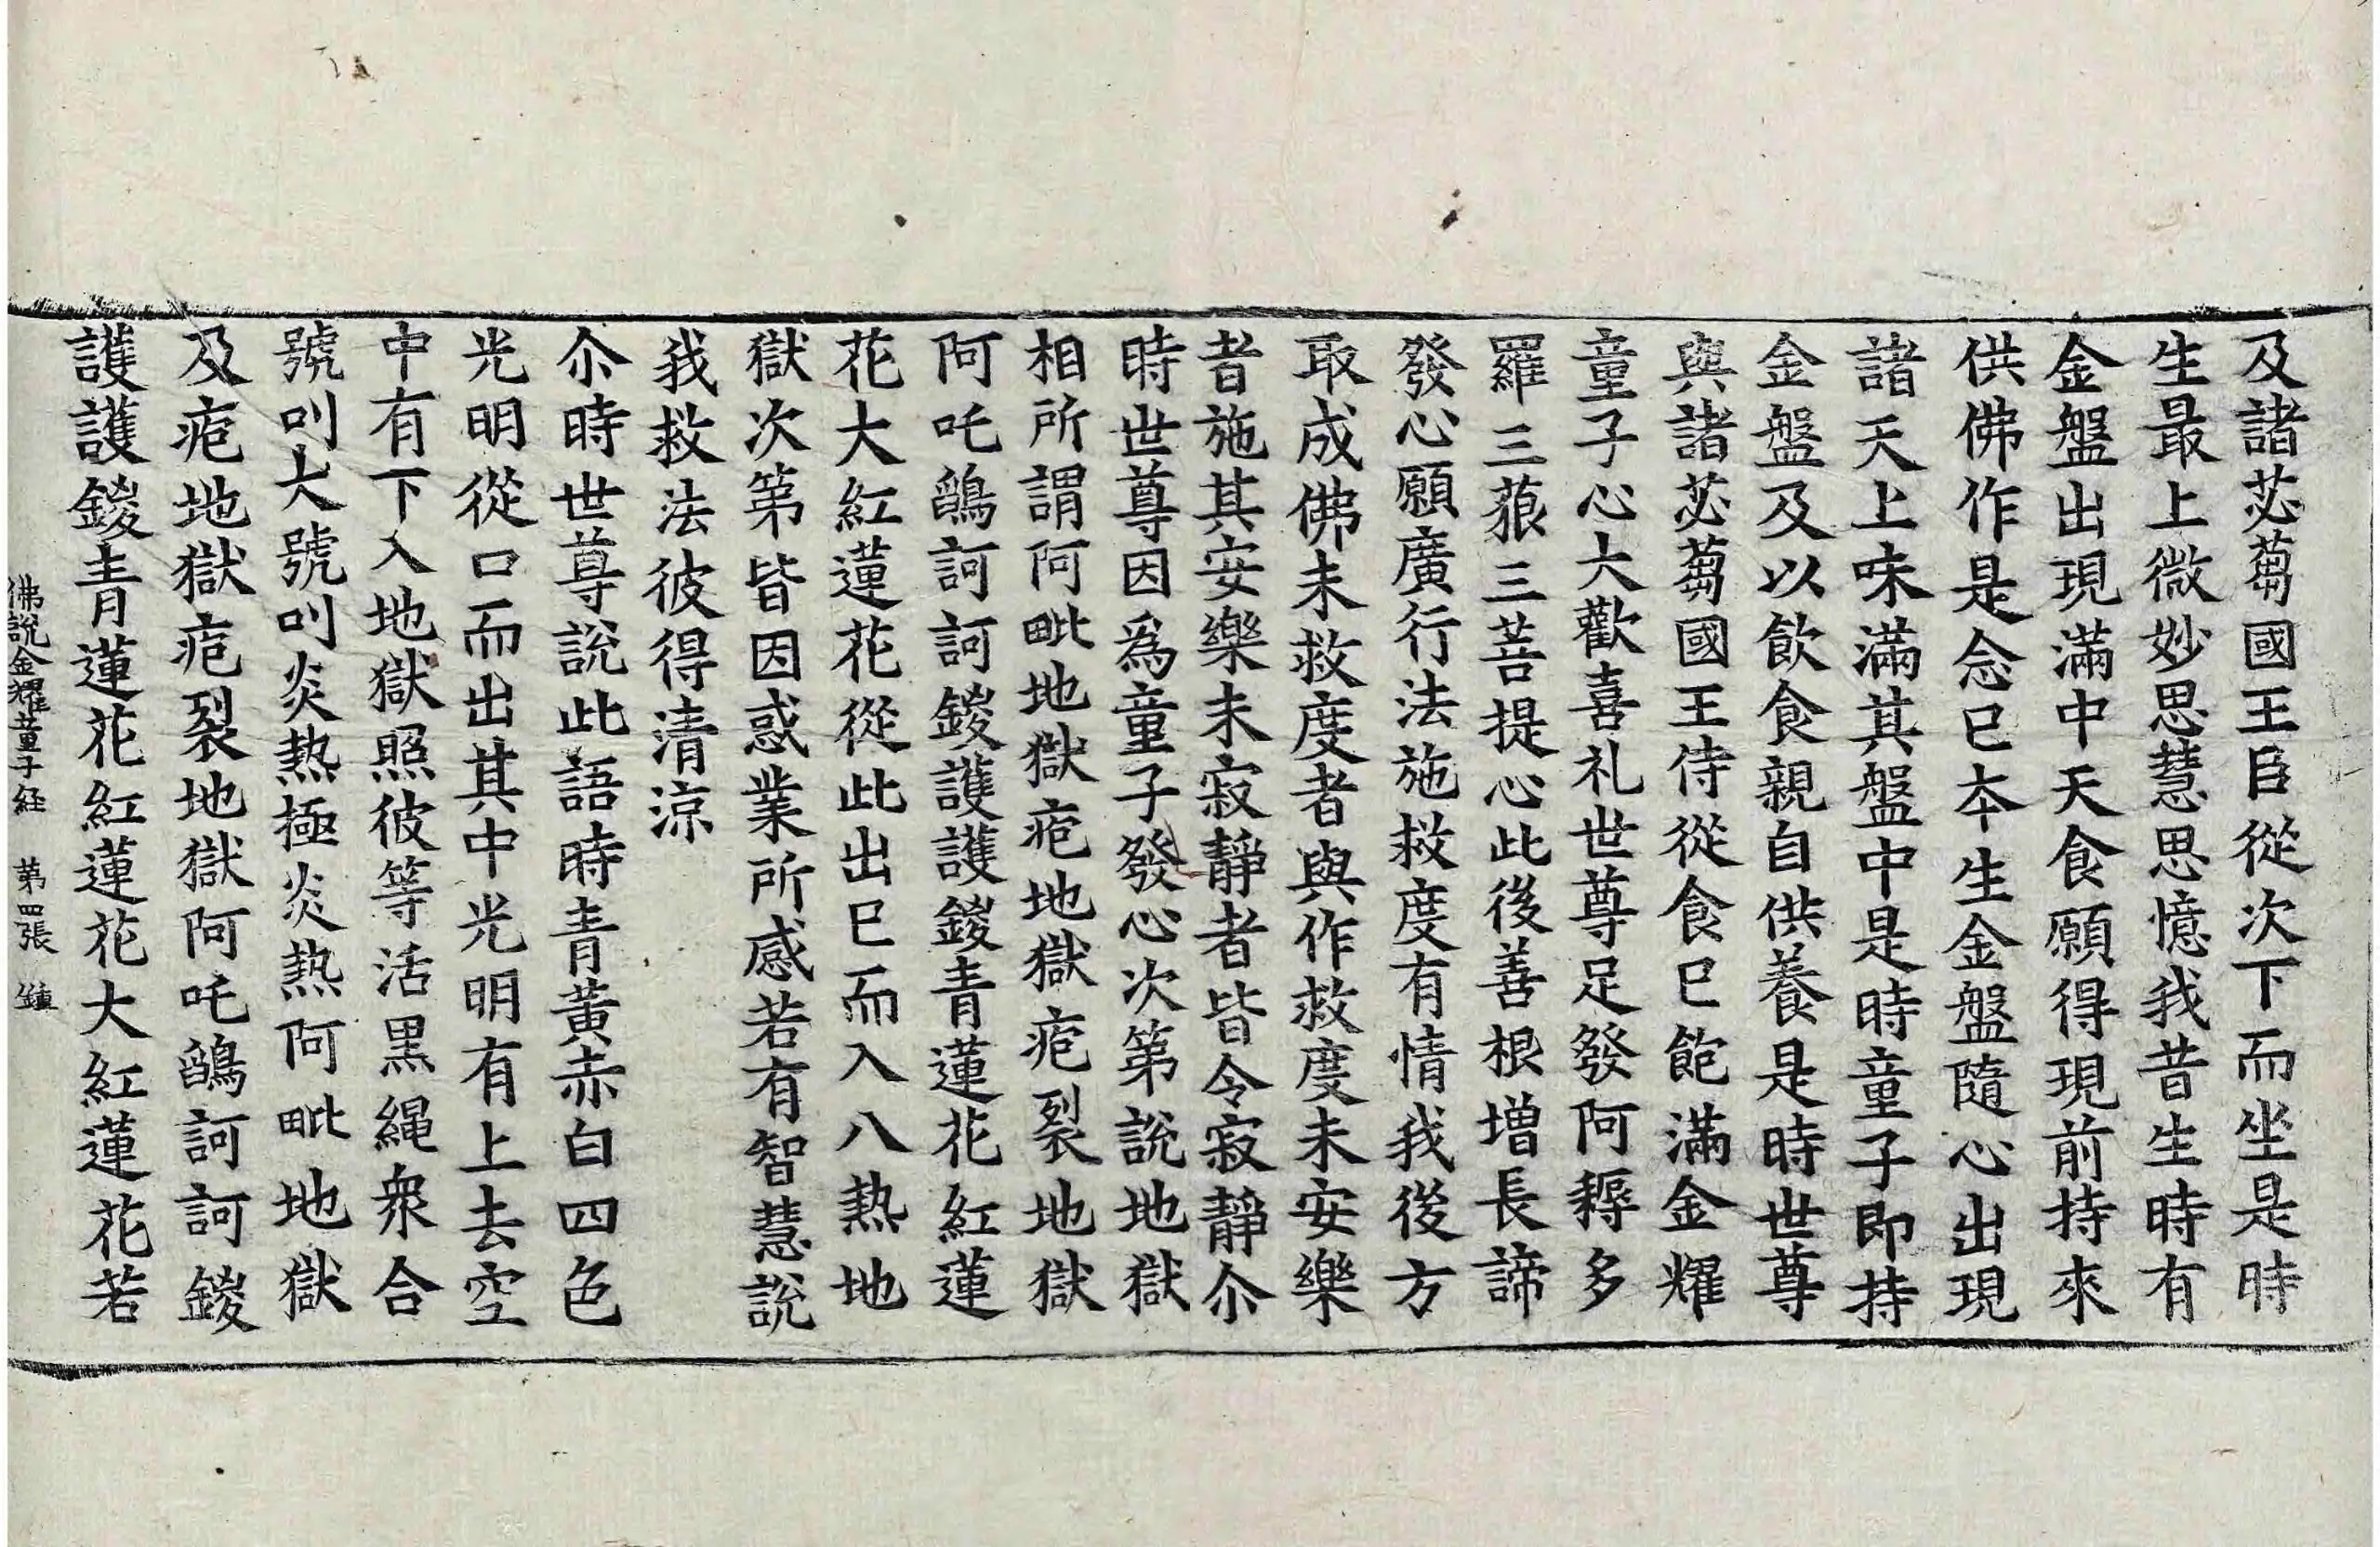 及諸苾蒭國王臣從次下而坐是時
生最上微妙思慧思憶我昔生時有
金盤出現滿中天食願得現前持來
供佛作是念已夲生金盤隨心出現
諸天上味滿其盤中是時童子即持
金盤及以飲食親自供養是時世尊
與諸苾蒭國王侍從食已飽滿金耀
童子心大歡喜礼世尊足發阿耨多
羅三藐三菩提心此後善根增長諦
發心願廣行法施救度有情我後方
取成佛未救度者與作救度未安樂
者施其安樂未寂靜者皆令寂靜尒
時世尊因為童子發心次第說地獄
相所謂阿毗地獄疱地獄疱裂地獄
阿吒鵮訶訶鍐護護鍐青蓮花紅蓮
花大紅蓮花從此出已而入八熱地
獄次第皆因惑業所感若有智慧說
我救法彼得清涼
尒時世尊說此語時青黃赤白四色
光明從口而出其中光明有上去空
中有下入地獄照彼等活黑繩衆合
號叫大號叫炎熱極炎熱阿毗地獄
及疱地獄疱裂地獄阿吒鵮訶訶鍐
護護鍐青蓮花紅蓮花大紅蓮花若
佛說金耀童子経 第四張